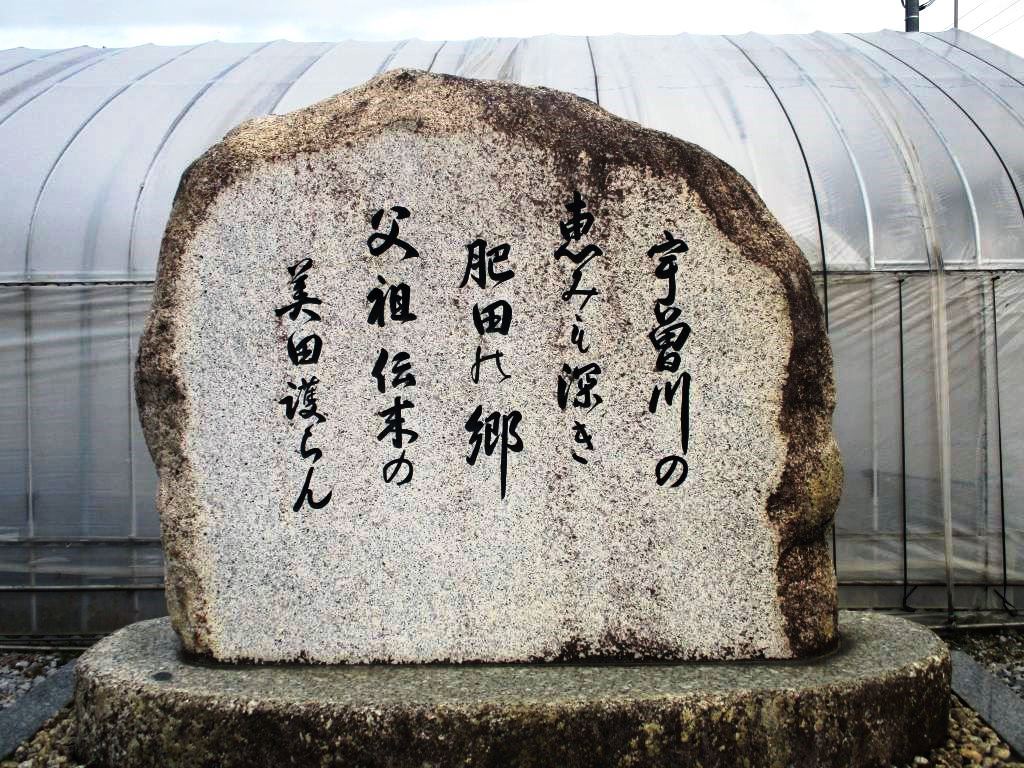 宇曽川の
恵みも深き
肥田の郷
父祖伝来の
美田護らん